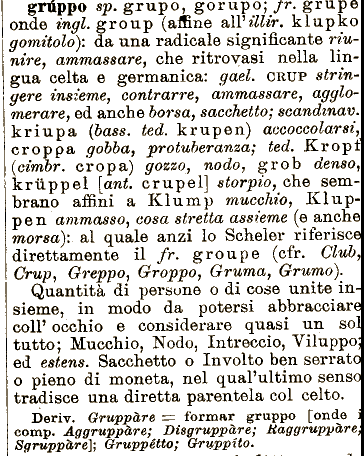 grúppo sp. grupo, gorupo; fr. grupe
onde ingl. group (affine all'illir. klupko
gomitolo): da una radicale significante riu-
nire, ammassare, che ritrovasi nella lin-
gua celta e germanica: gael. CRUP strin-
gere insieme, contrarre, ammassare, agglo-
merare, ed anche borsa, sacchetto; scandinav.
kriupa (bass. ted. krupen) accoccolarsi,
croppa gobba, protuberanza; ted. Kropf
(cimbr. cropa) gozzo, nodo, grob denso,
krüppel [ant. crupel] storpio, che sem-
brano affini a Klump mucchio, Klup-
pen ammasso, cosa stretta assieme (e anche
morsa): al quale anzi lo Scheler riferisce
direttamente il fr. groupe (cfr. Club,
Crup, Greppo, Groppo, Gruma, Grumo).
Quantità di persone o di cose unite in-
sieme, in modo da potersi abbracciare
coll' occhio e considerare quasi un sol
tutto; Mucchio, Nodo, Intreccio, Viluppo;
ed estens. Sacchetto o Involto ben serrato
o pieno di moneta, nel qual'ultimo senso
tradisce una diretta parentela col celto.
Deriv. Gruppàre = formar gruppo [onde i
comp. Aggruppàre; Disgruppàre; Raggruppàre;
Sgruppàre]; Gruppétto; Gruppíto.